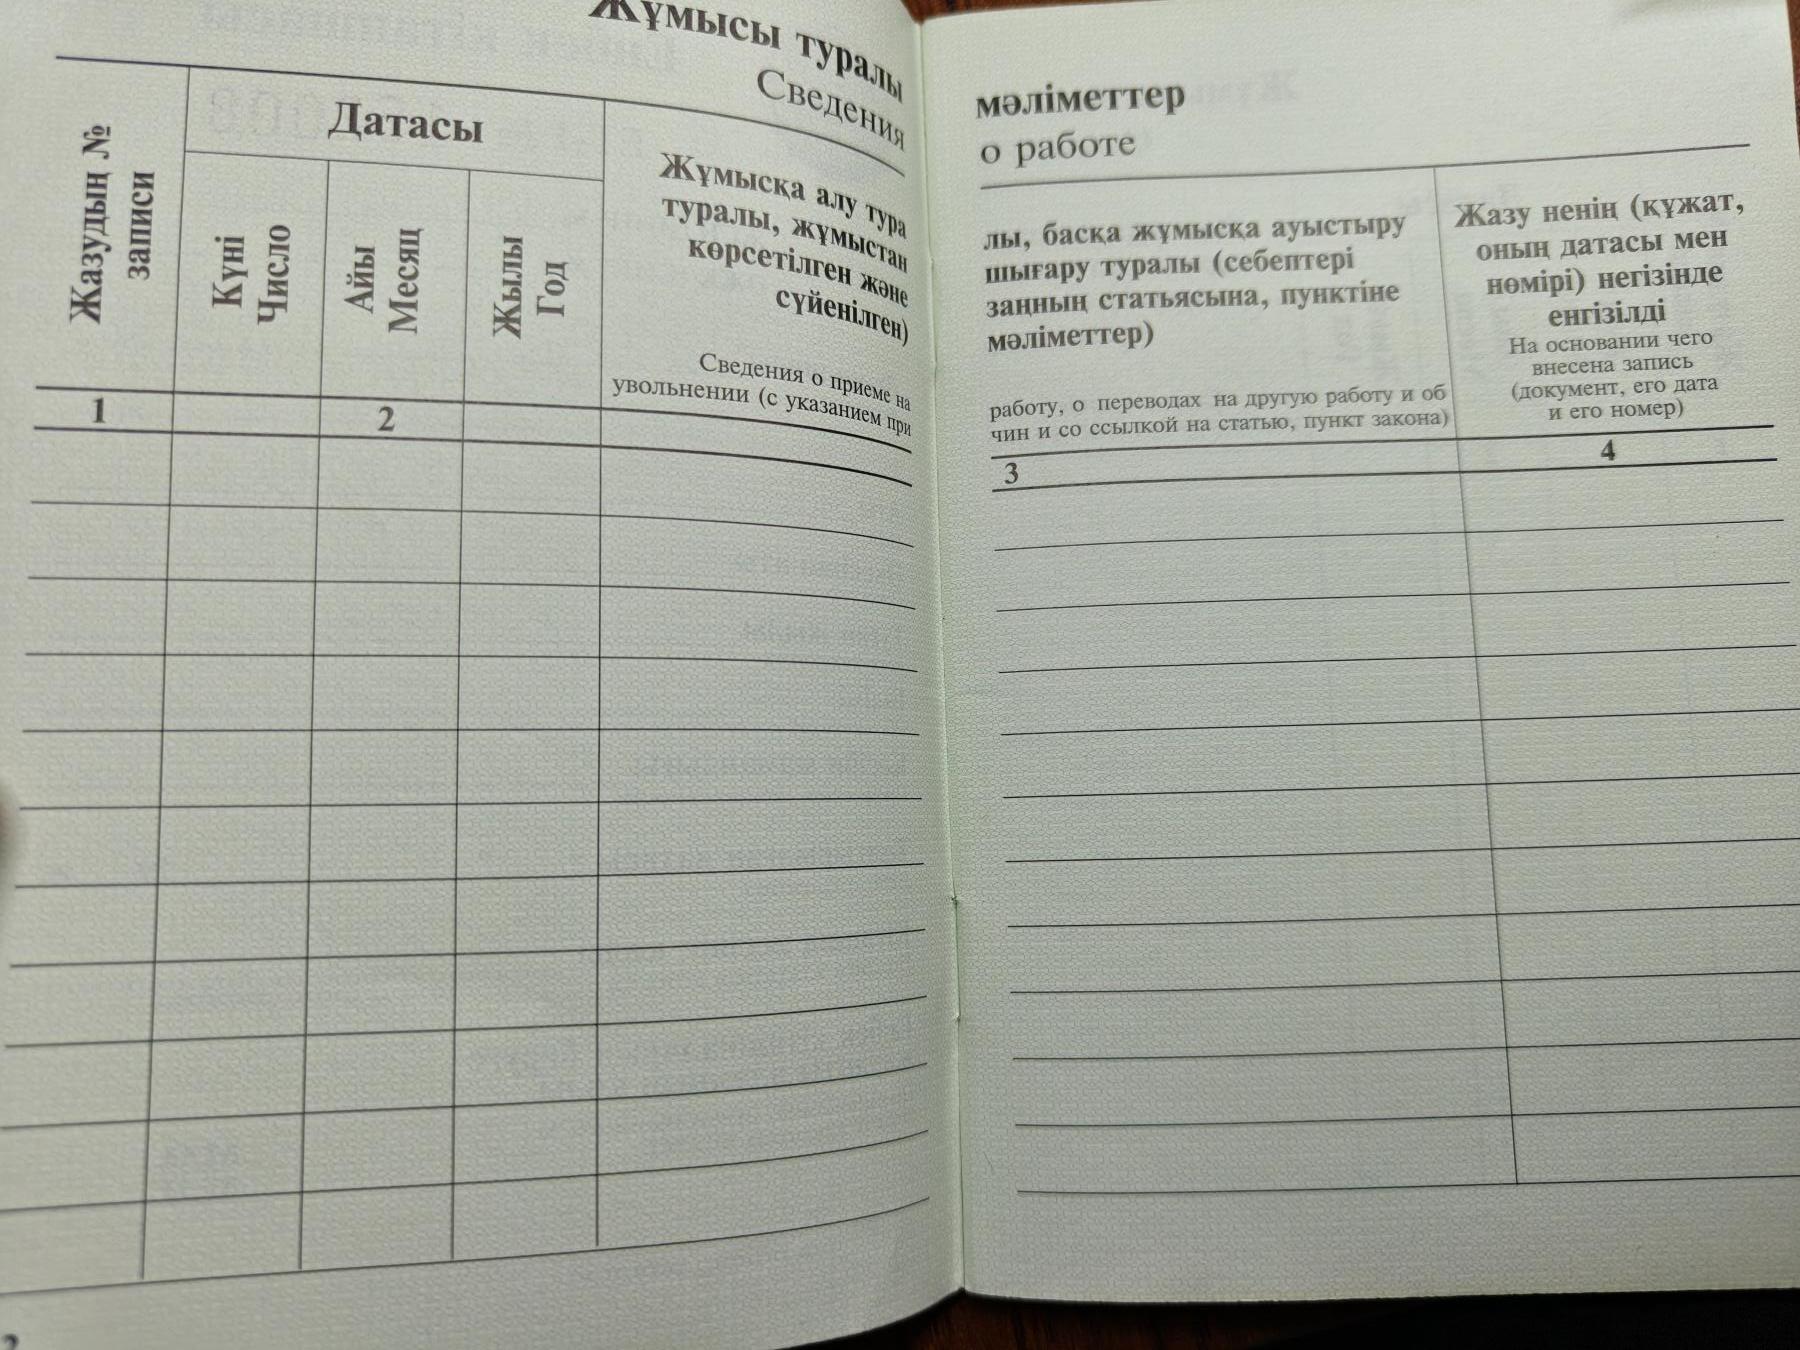 Жұмысы туралы
Сведения
Жазудың №
записи
Датасы
Күні
Число
Айы
Месяц
Жылы
Год
Жұмысқа алу тура
туралы, жұмыстан
көрсетілген және
сүйенілген)
Сведения о приеме на
увольнении (с указанием при
1
2
мәліметтер
о работе
лы, басқа жұмысқа ауыстыру
шығару туралы (себептері
заңның статьясына, пунктіне
мәліметтер)
работу, о переводах на другую работу и об
чин и со ссылкой на статью, пункт закона)
Жазу ненің (құжат,
оның датасы мен
нөмірі) негізінде
енгізілді
На основании чего
внесена запись
(документ, его дата
и его номер)
3
4